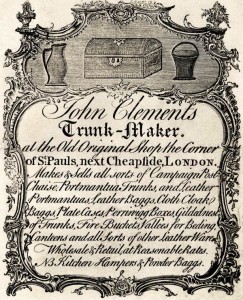 John Clements
Trunk-Maker.
at the Old Original Shop the Corner
of St. Pauls, next Cheapside, LONDON.
Makes & Sells all sorts of Campaign Post
Chaise, Portmantua Trunks, and Leather
Portmantuas, Leather Baggs, Cloth Cloak
Baggs, Plate Cases, Perriwigg Boxes,
of Trunks, Fire Buckets, Vallees for Beding
Canteens and all Sorts of other Leather Ware
Wholesale & Retail, at Reasonable Rates.
NB. Kitchen Hampers & Powder Baggs.